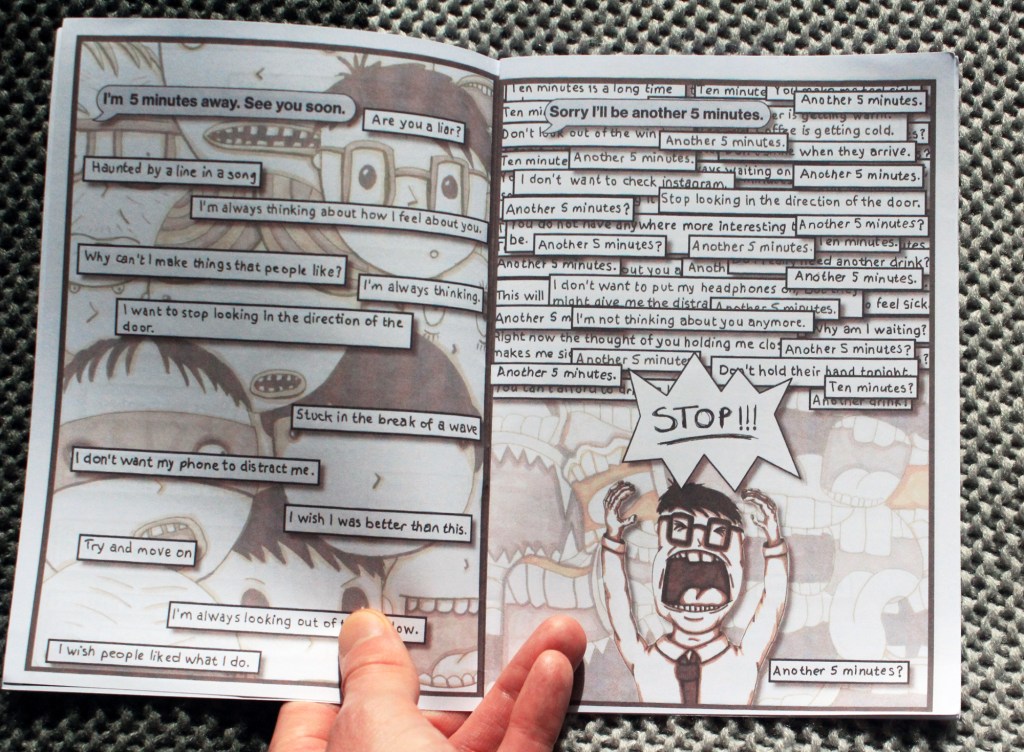 I'm 5 minutes away. See you soon.
Are you a liar?
Haunted by a line in a song
I'm always thinking about how I feel about you.
Why can't I make things that people like?
I'm always thinking.
I want to stop looking in the direction of the
door.
Stuck in the break of a wave
I don't want my phone to distract me.
I wish I was better than this.
Try and move on
I'm always looking out of
I wish people liked what I do.
Ten minutes is a long time
Ten minute
Another 5 minutes.
Ten mi
Sorry I'll be another 5 minutes.
is getting
Don't look out of the win
Another 5 minutes.
is getting cold.
Ten minute
Another 5 minutes.
when they arrive.
waiting on
Another 5 minutes.
I don't want to check instagram.
Stop looking in the direction of the door.
Another 5 minutes?
You do not have anywhere more interesting
Another 5 minutes?
be.
Another 5 minutes?
Another 5 minutes.
Ten minutes.
need another drink?
Another 5 minutes.
but you a
Anoth
Another 5 minutes.
This will
I don't want to put my headphones on,
might give me the distra
Another 5 minutes.
feel sick.
Another 5 m
I'm not thinking about you anymore.
why am I waiting?
Right now the thought of you holding me clos
Another 5 minutes?
makes me si
Another 5 minute
Another 5 minutes.
Don't hold their hand tonight.
You can't afford to
Ten minutes?
Another drink?
STOP!!!
Another 5 minutes?